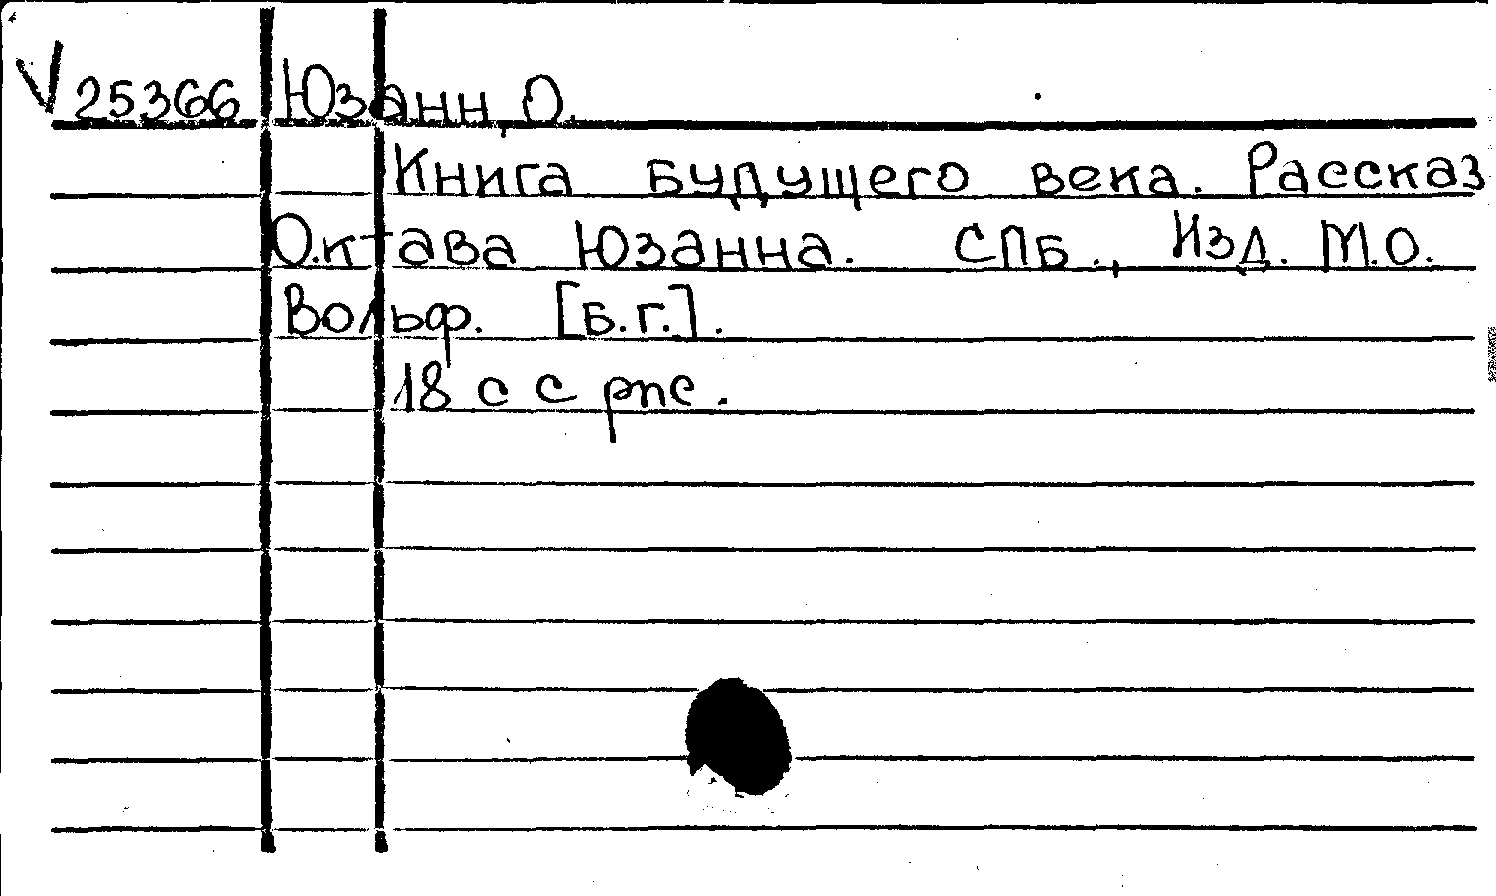 V 25366 Юзанн, О.
Книга будущего века. Рассказ
Октава Юзанна. СПБ., Изд. М.О.
Вольф. [Б.г.].
18 с с рис.